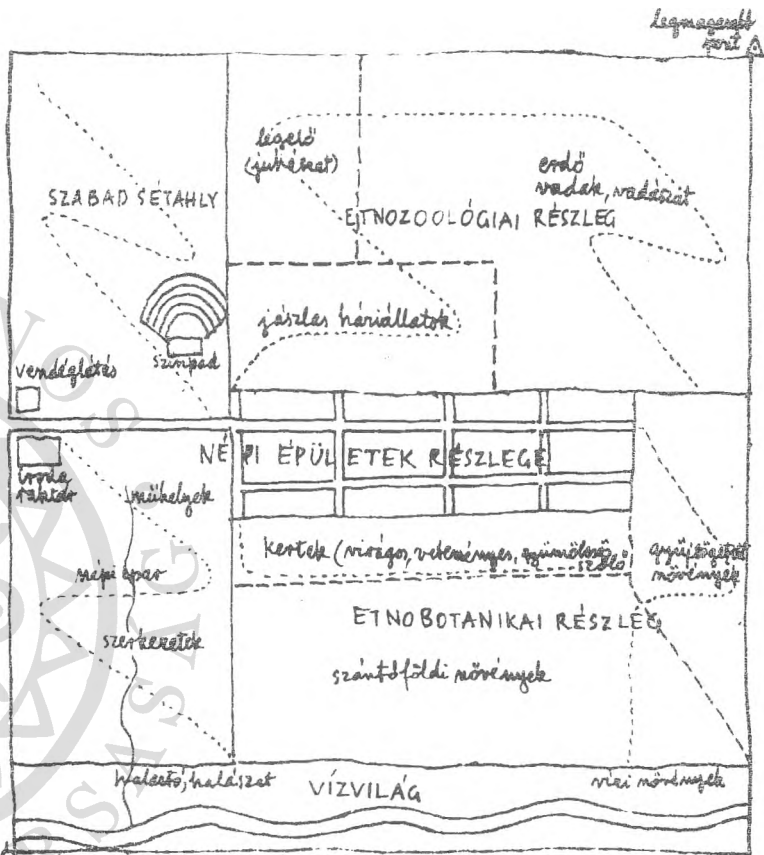 legmagasabb
pont
legelő
(juhászat)
erdő
vadak, vadászat
SZABAD SÉTAHLY
ETNOZOOLÓGIAI RÉSZLEG
jászlas háziállatok
színpad
vendéglátás
NÉPI ÉPÜLETEK RÉSZLEGE
iroda
raktár
műhelyek
kertek (virágos, veteményes, gyümölcsös,
szőlő
gyűjtögetett
növények
népi ipar
ETNOBOTANIKAI RÉSZLEG
szerkezetek
szántóföldi növények
halastó, halászat
VÍZVILÁG
vizi növények